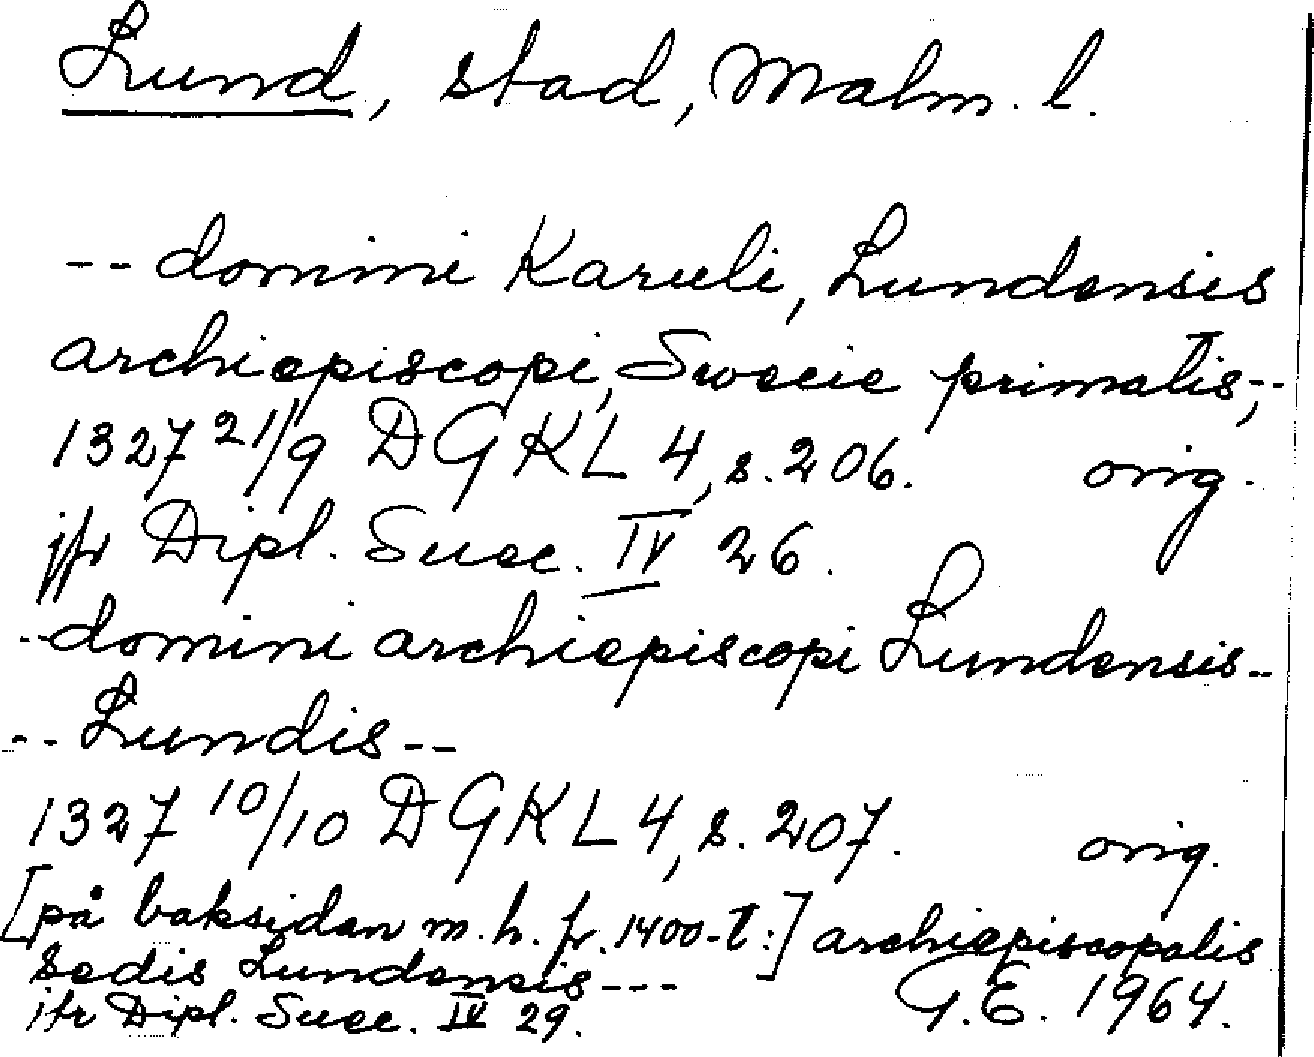 Lund, stad, Malm. l.
-- domini Karuli, Lundensis
archiepiscopi, Swecie primatis,--
1327 21/9 DGKL 4, s. 206. orig.
jfr Dipl. Suec. IV 26.
--domini archiepiscopi Lundensis--
-- Lundis --
1327 10/10 DGKL 4, s. 207. orig.
[på baksidan m. h. fr. 1400-t:] archiepiscopalis
sedis Lundensis ---
jfr Dipl. Suec. IV 29. G.E. 1964.